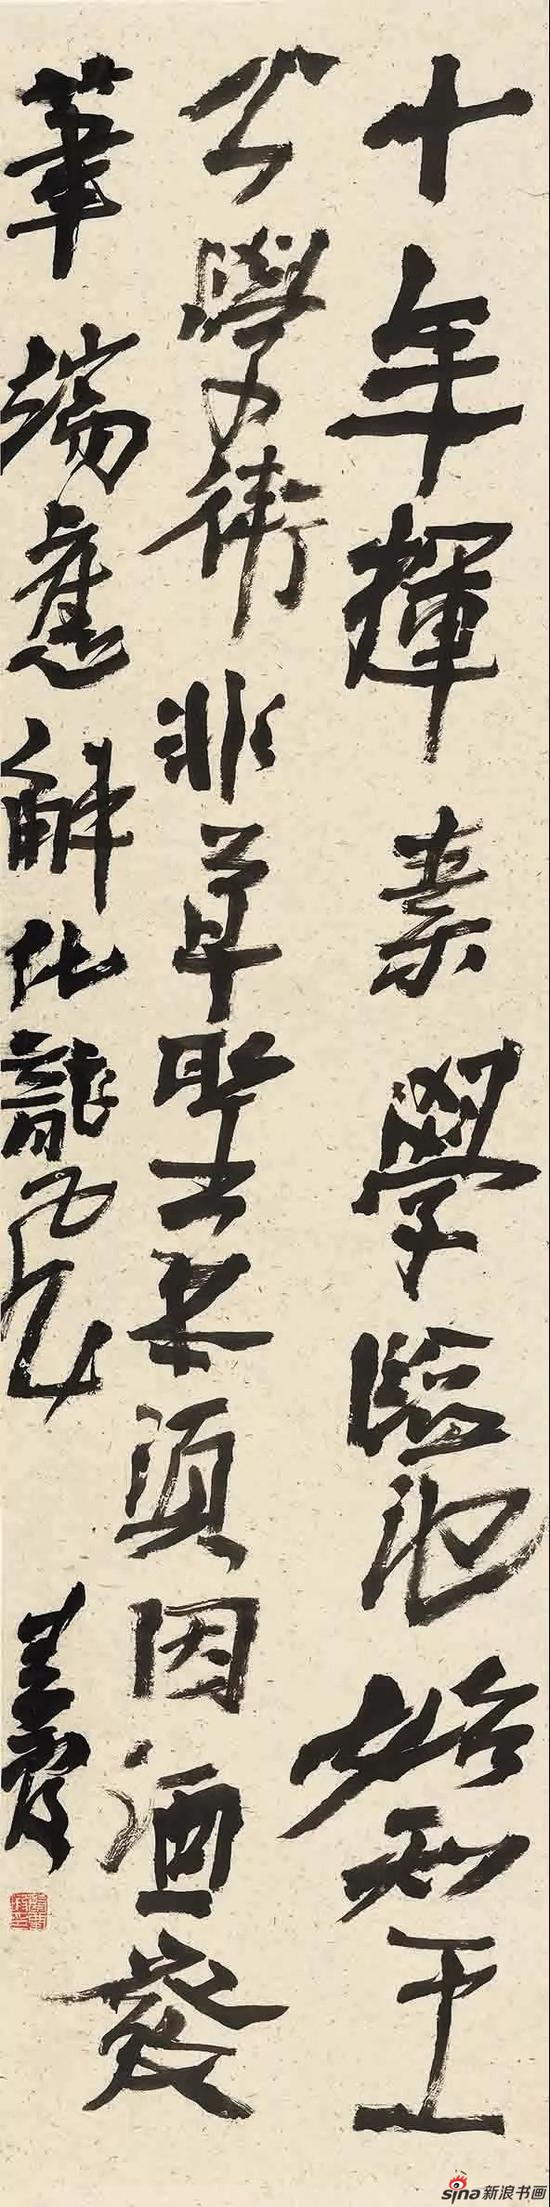 十年輝素學臨池始知王
公學衛非草聖未須因酒發
筆端應解化龍飛
sina新浪书画